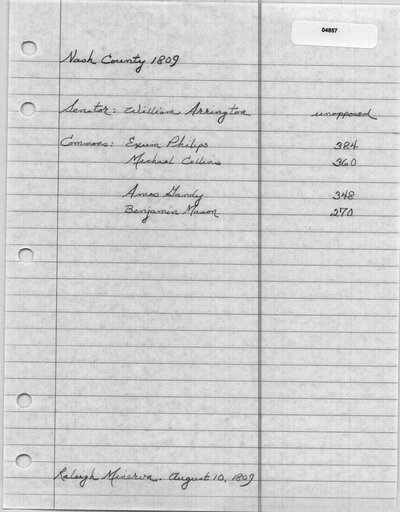 04857
Nash County 1809
Senator: William Arrington unopposed
Commons: Exum Philips 384
Michael Collins 360
Amos Gandy 348
Benjamin Mason 270
Raleigh Minerva. August 10, 1809